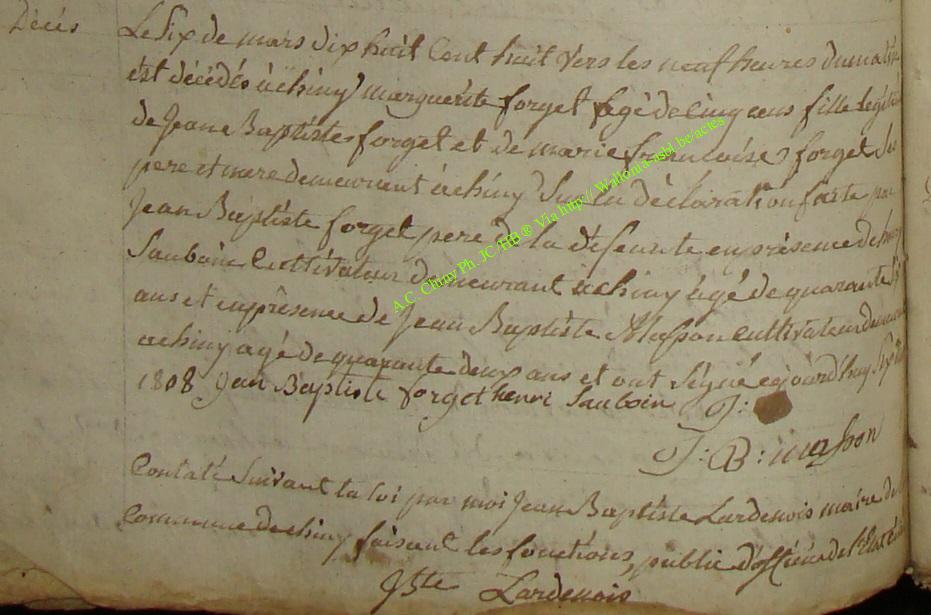 Décès
Le Six de mars dix huit Cent huit Vers les neuf heures du matin
est décédés à chiny marguerite forget agé de Cinq ans fille legiti
de Jean Baptiste forget et de marie francoise forget Ses
pere et mere demeurant à chiny Sur la déclaration faite par
Jean Baptiste forget pere de la défeunte en présence de
Sauboin Cultivateur demeurant à chiny agé de quarante
ans et en présence de Jean Baptiste Masson Cultivateur
a chiny agé de quarante deux ans et ont Signé
1808 Jean Baptiste forget henri Sauboin J:
J: B: masson
Contaté Suivant la loi par moi Jean Baptiste Lardenois maire de
Commune de chiny faisant les fonctions public d'officier de l'Etat
Jbte Lardenois
A.C. Chiny Ph. JC /HB ® Via http:// Wallonia-asbl be/actes